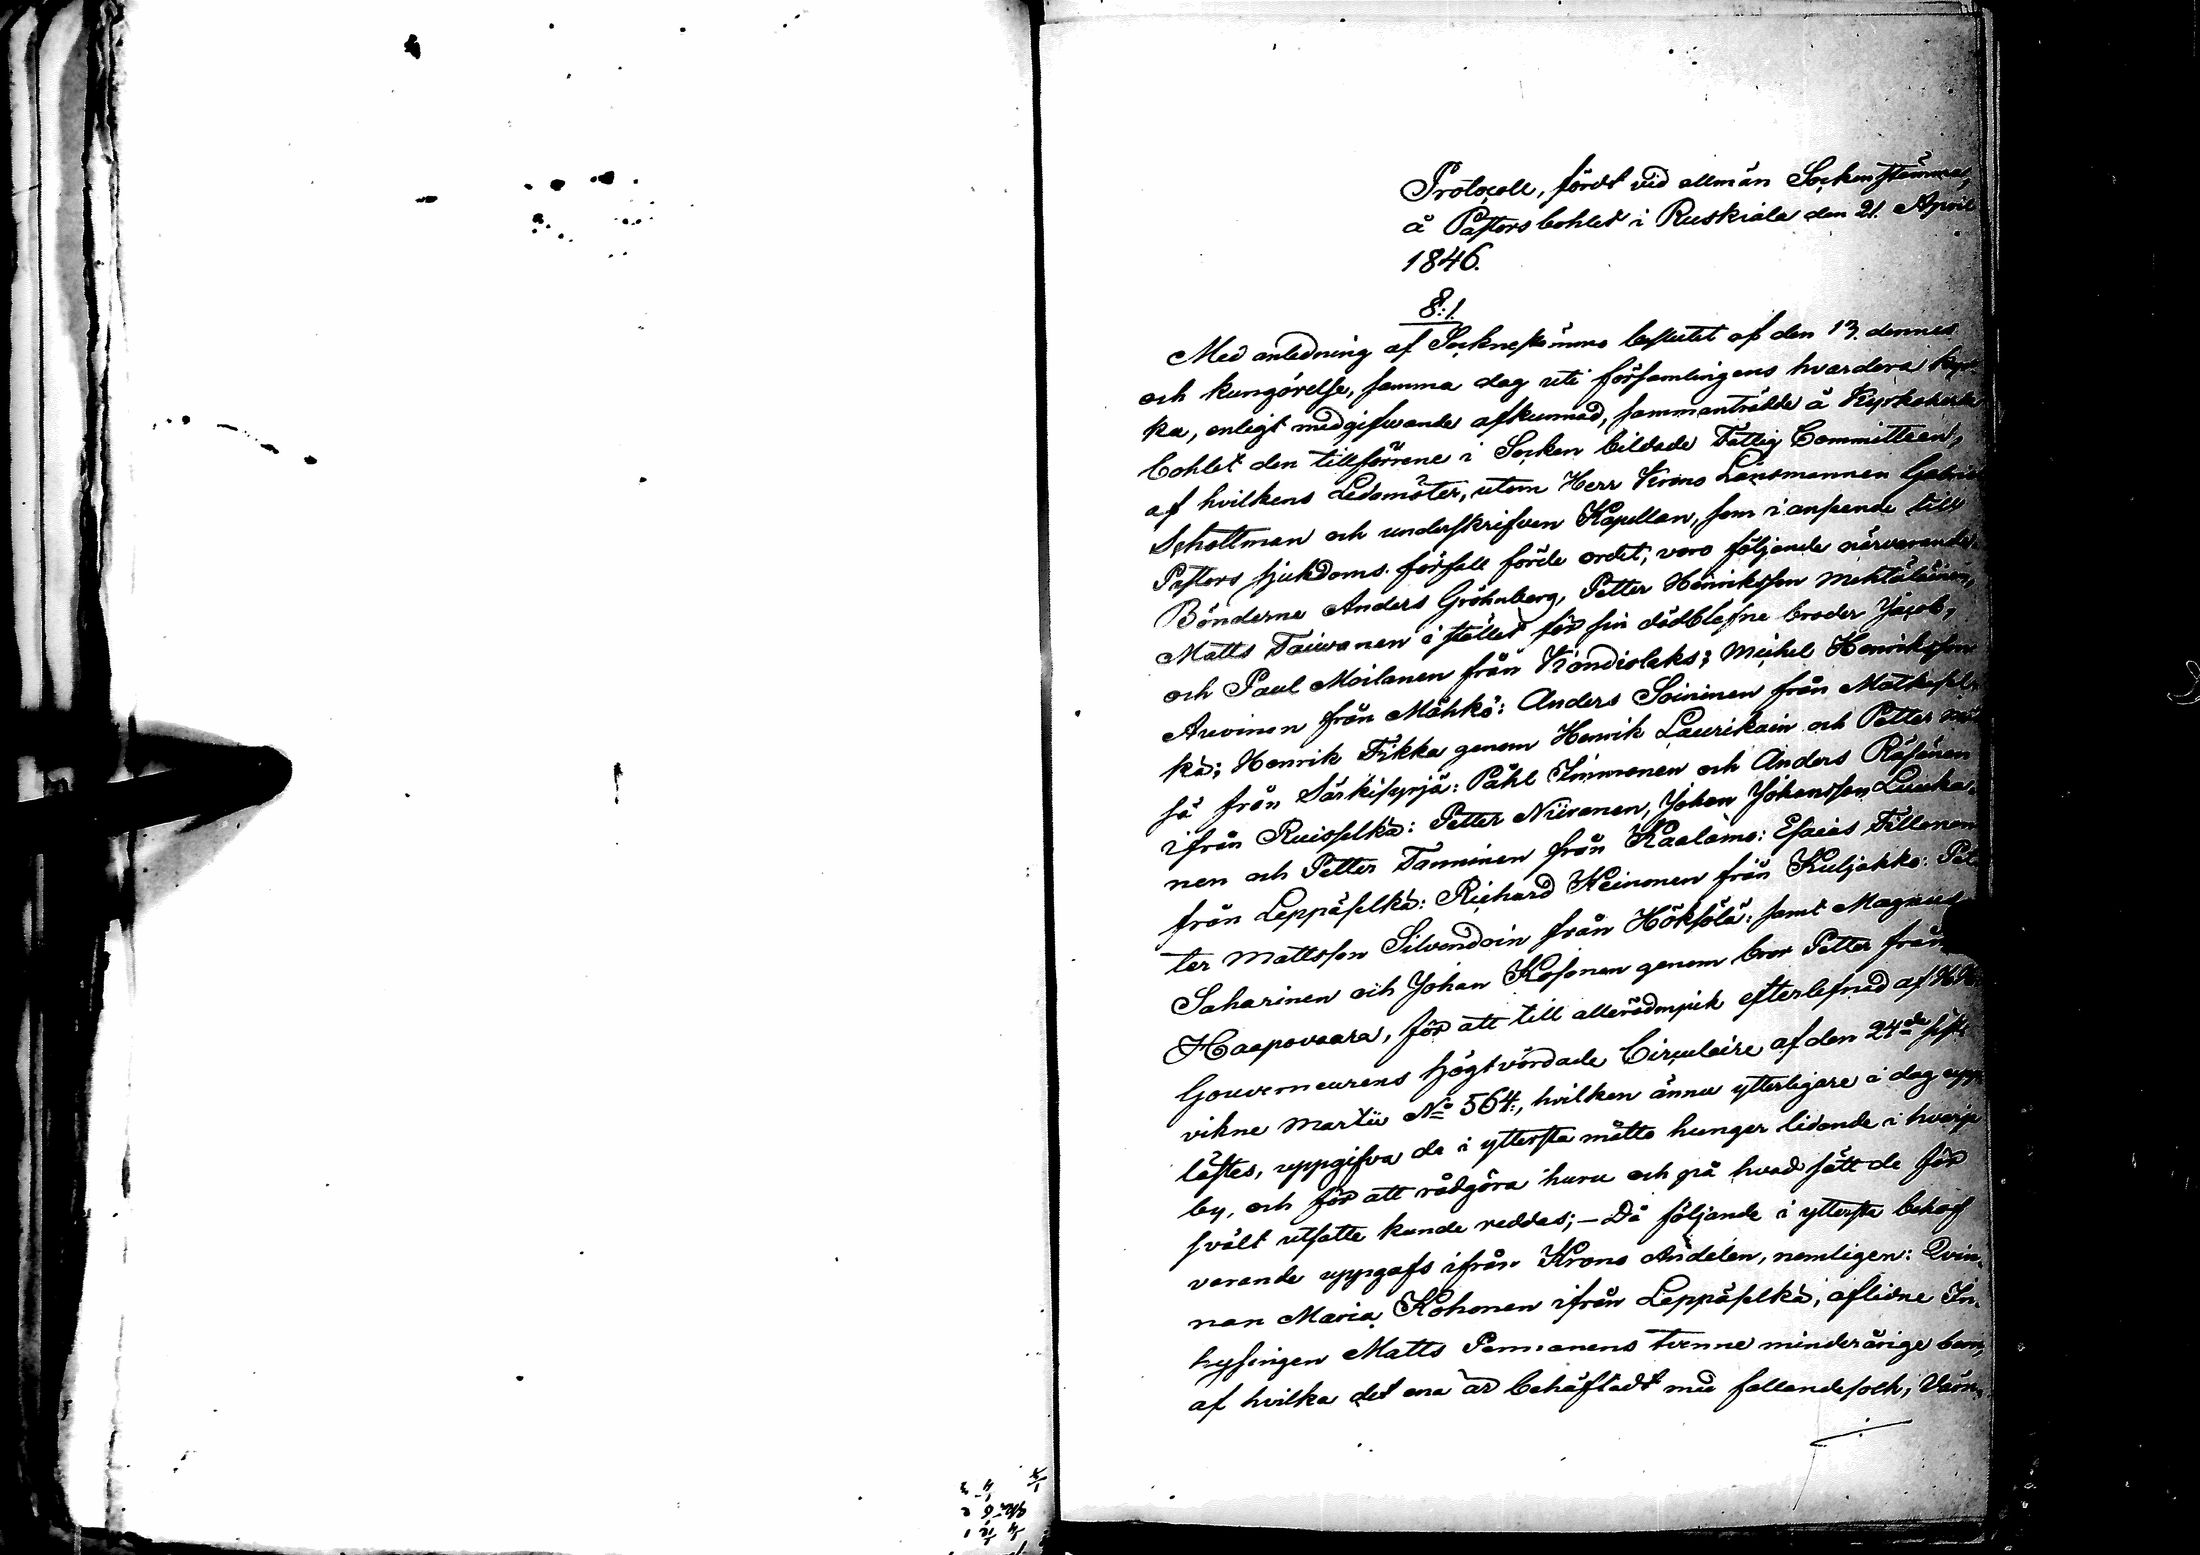 Protocoll, fördt vid allmän Sockenstämma,
å Pastorsbohlet i Ruskiala den 21. April
1846.
§:1.
Med anledning af Socknestämmo beslutet af den 13. dennes
och kungörelse, samma dag uti församlingens hvardera kyr-
ka, enligt medgifwande afkunnad, sammanträdde å Kyrkoherde
bohlet den tillförrene i Socken bildade Fattig Committeen,
af hvilkens Ledamöter, utom Herr Krono Länsmannen Gabriel
Schottman och underskrifven Kapellan, som i anseende till
Pastors sjukdoms förfall förde ordet, voro följande närvarande:
Bönderne Anders Gröhnberg, Petter Henriksson Mehtäläinen,
Matts Taiwanen i stället för sin dödblefne broder Jacob,
och Paul Moilanen från Kondiolaks; Michel Henriksson
Arvinen från Mähkö: Anders Soininen från Matkasel-
kä; Henrik Tikka genom Henrik Laurikain och Petter
så från Särkisyrjä: Påhl Immonen och Anders Räsänen
ifrån Ruisselkä: Petter Niiranen, Johan Johansson Liuka-
nen och Petter Tanninen från Kaalamo: Esaias Tillonen
från Leppäselkä: Richard Keinonen från Kuljakko: Pet-
ter Mattsson Silvendoin från Höksölä: samt Magnus
Saharinen och Johan Kosonen genom bror Petter från
Haapovaara, för att till allerödmjuk efterlefnad af
Gouverneurens högtvördade Circulaire af den 24de sist-
vikne Martii No 564:, hvilken ännu ytterligare i dag upp-
lästes, uppgifva de i yttersta måtto hunger lidande i hvarje
by, och för att rådgöra huru och på hvad sätt de för
svält utsatte kunde reddas; — Då följande i yttersta behof
varande uppgafs ifrån Krono Andelen, nemligen: Qvin-
nan Maria Kohonen ifrån Leppäselkä, aflidne In-
hysingen Matts Pennanens tvenne minderårige barn,
af hvilka det ena är behäftadt med fallandesoth,